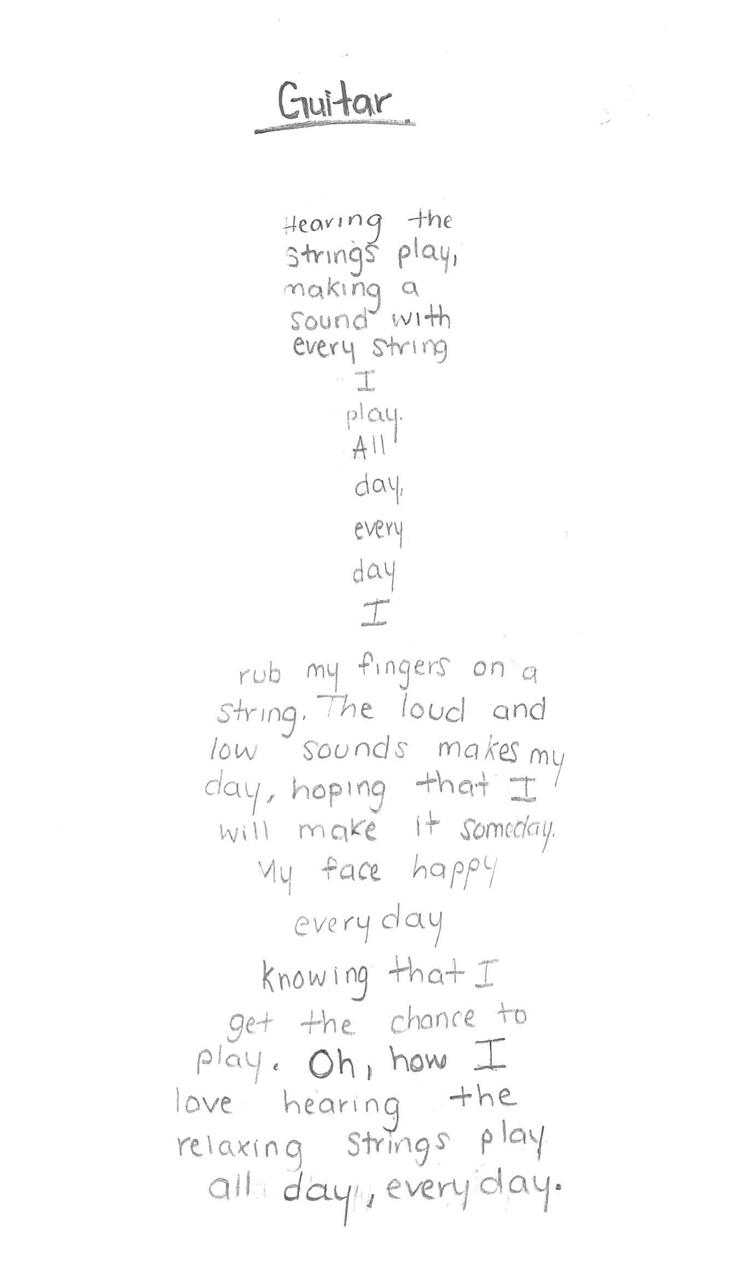 Guitar
Hearing the
strings play,
making a
sound with
every string
I
play.
All
day,
every
day
I
rub my fingers on a
string. The loud and
low sounds makes my
day, hoping that I
will make it someday.
My face happy
everyday
knowing that I
get the chance to
play. Oh, how I
love hearing the
relaxing strings play
all day, everyday.